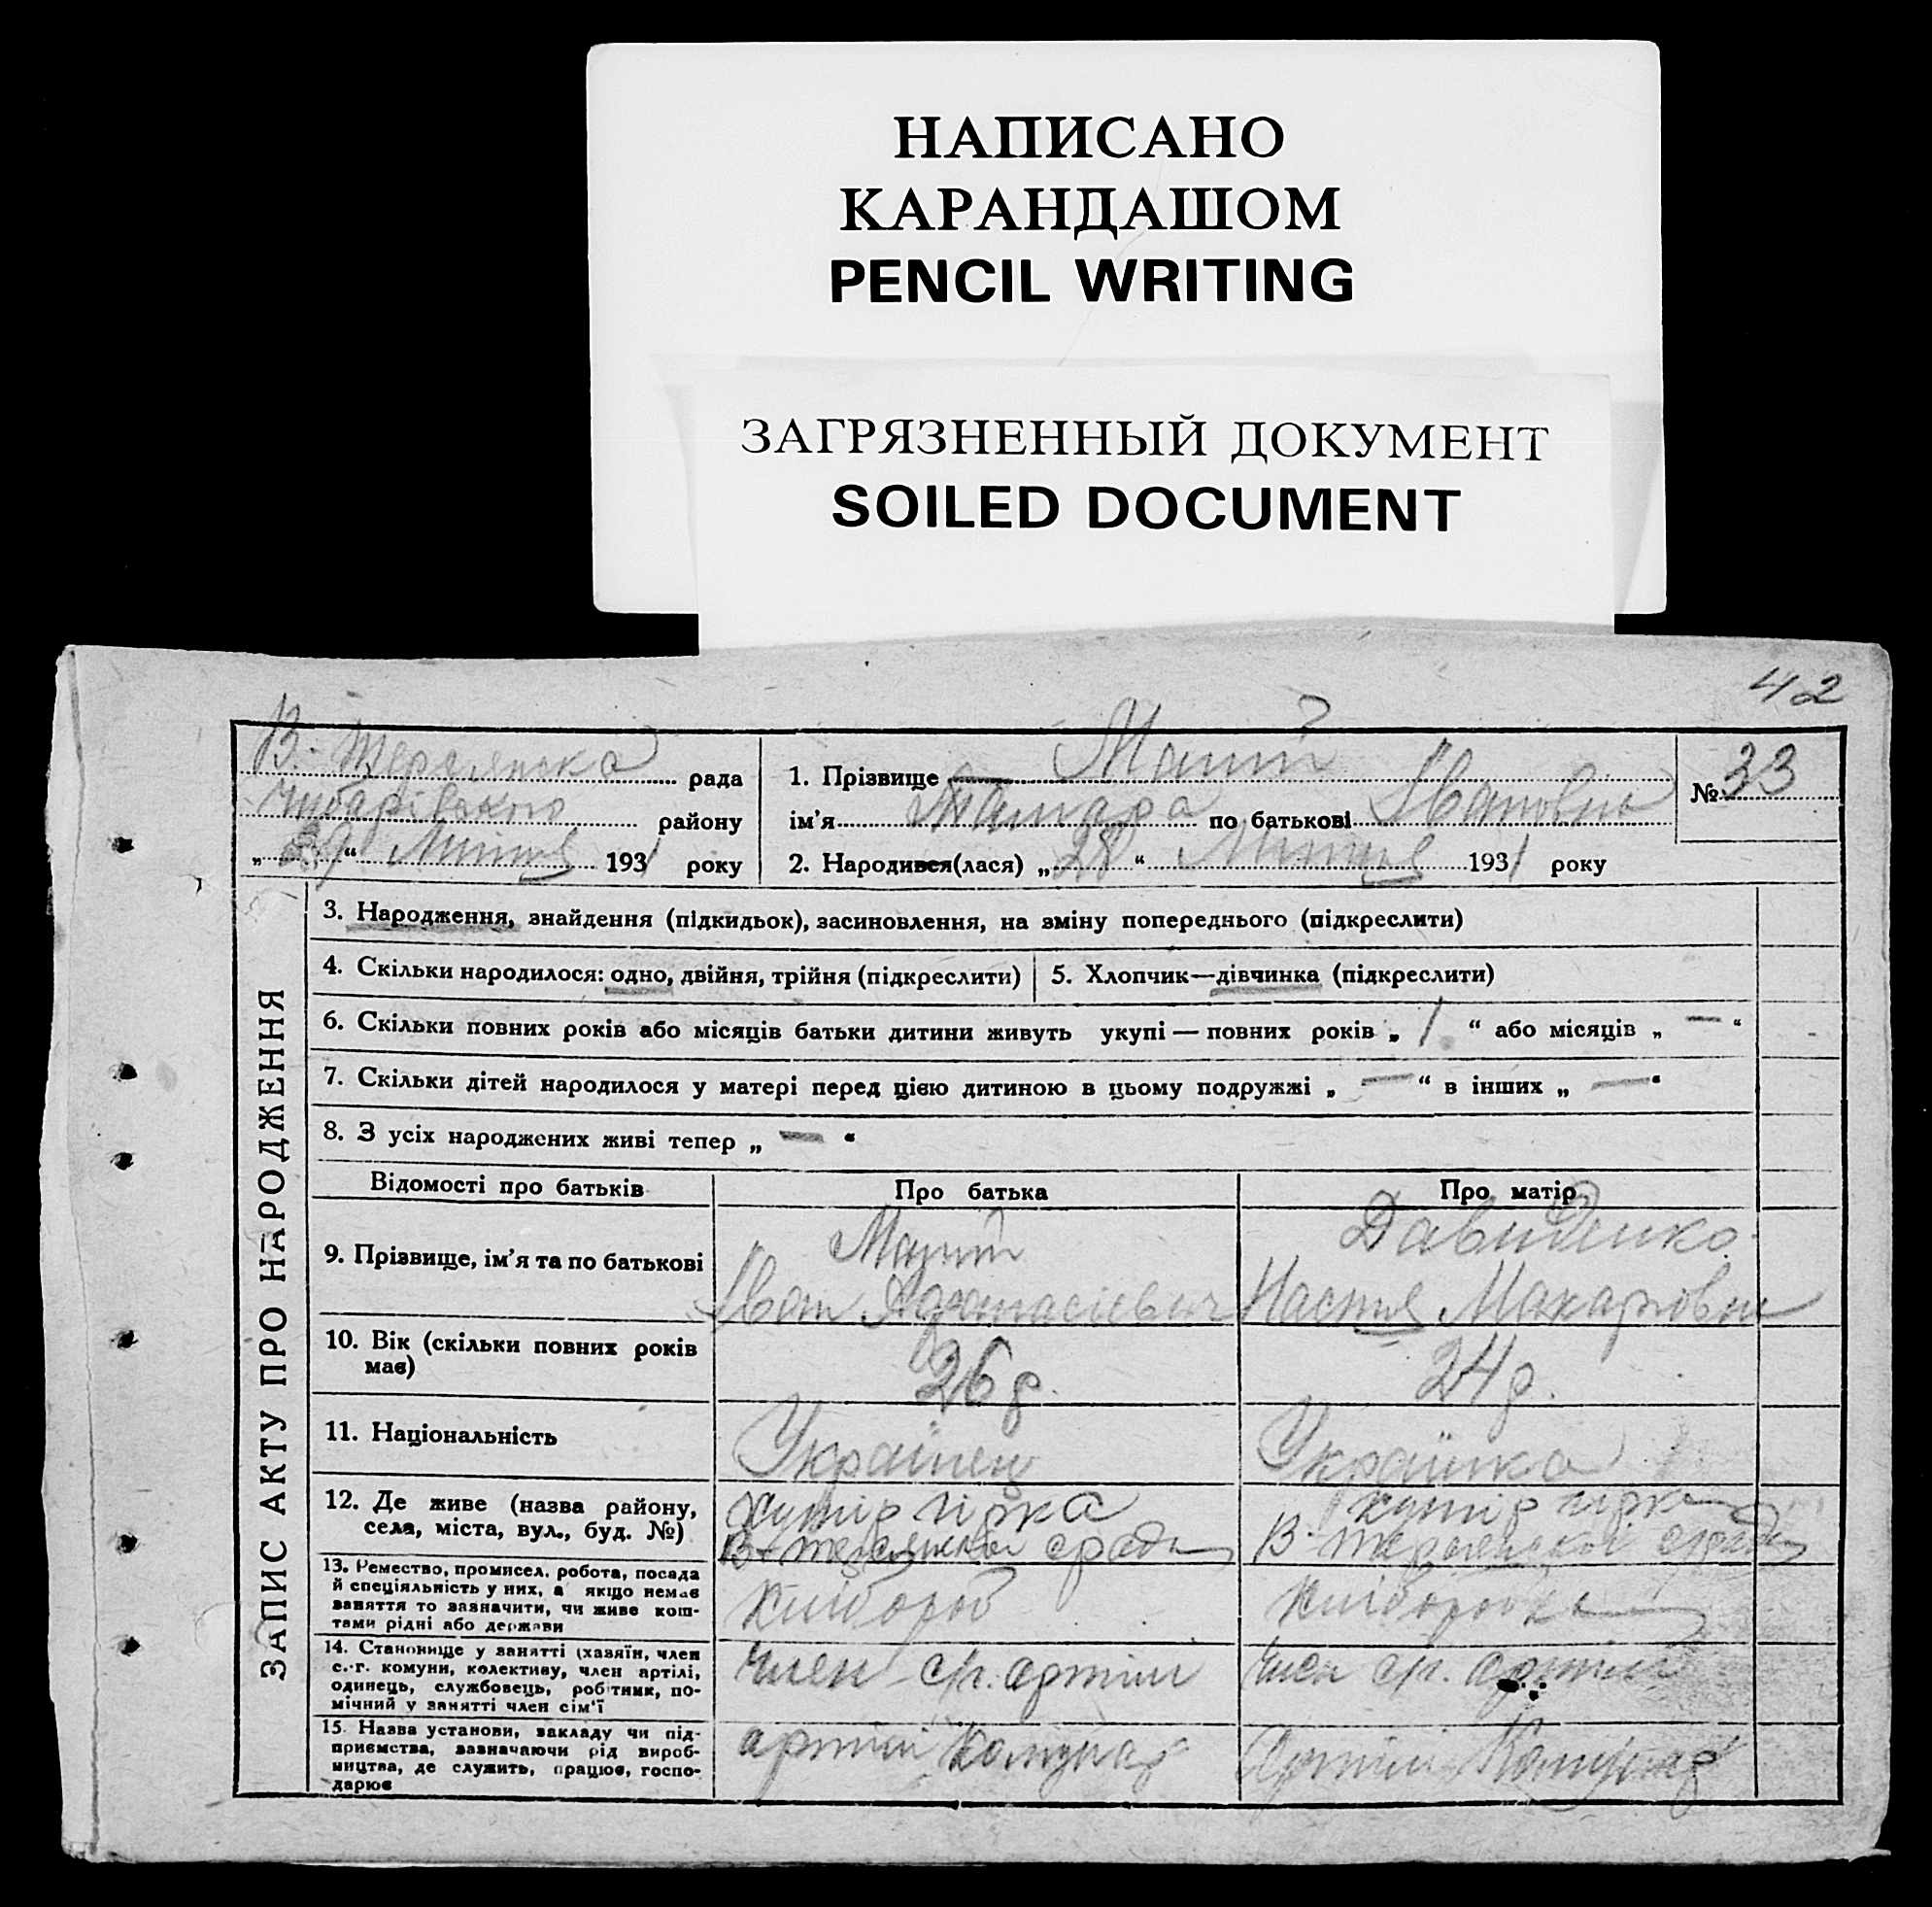 НАПИСАНО
КАРАНДАШОМ
PENCIL WRITING
ЗАГРЯЗНЕННЫЙ ДОКУМЕНТ
SOILED DOCUMENT
42
рада
району
„ 29 “ 1931 року
1. Прізвище
ім’я Тамара по батькові Івановна
2. Народився(лася) „ 28 “ 1931 року
№ 33
ЗАПИС АКТУ ПРО НАРОДЖЕННЯ
3. Народження, знайдення (підкидьок), засиновлення, на зміну попереднього (підкреслити)
4. Скільки народилося: одно, двійня, трійня (підкреслити) 5. Хлопчик—дівчинка (підкреслити)
6. Скільки повних років або місяців батьки дитини живуть укупі — повних років „ 1 “ або місяців „ — “
7. Скільки дітей народилося у матері перед цією дитиною в цьому подружжі „ — “ в інших „ — “
8. З усіх народжених живі тепер „ — “
Відомості про батьків Про батька Про матір
9. Прізвище, ім’я та по батькові
Давиденко
Іван Афанасієвич Настя Макаровна
10. Вік (скільки повних років
має)
26 р. 24 р.
11. Національність Українец Українка
12. Де живе (назва району,
села, міста, вул., буд. №)
хутір гірка хутір гірка
13. Ремество, промисел, робота, посада
й спеціяльність у них, а якщо немає
заняття то зазначити, чи живе кош-
тами рідні або держави
Хлібороб Хліборобка
14. Становище у занятті (хазяїн, член
с.-г. комуни, колективу, член артілі,
одинець, службовець, робітник, по-
мічний у занятті член сім’ї
член с/г. артілі член с/г. артілі
15. Назва установи, закладу чи під-
приємства, зазначаючи рід вироб-
ництва, де служить, працює, госпо-
дарює
артілі Комунар Артілі Комунар